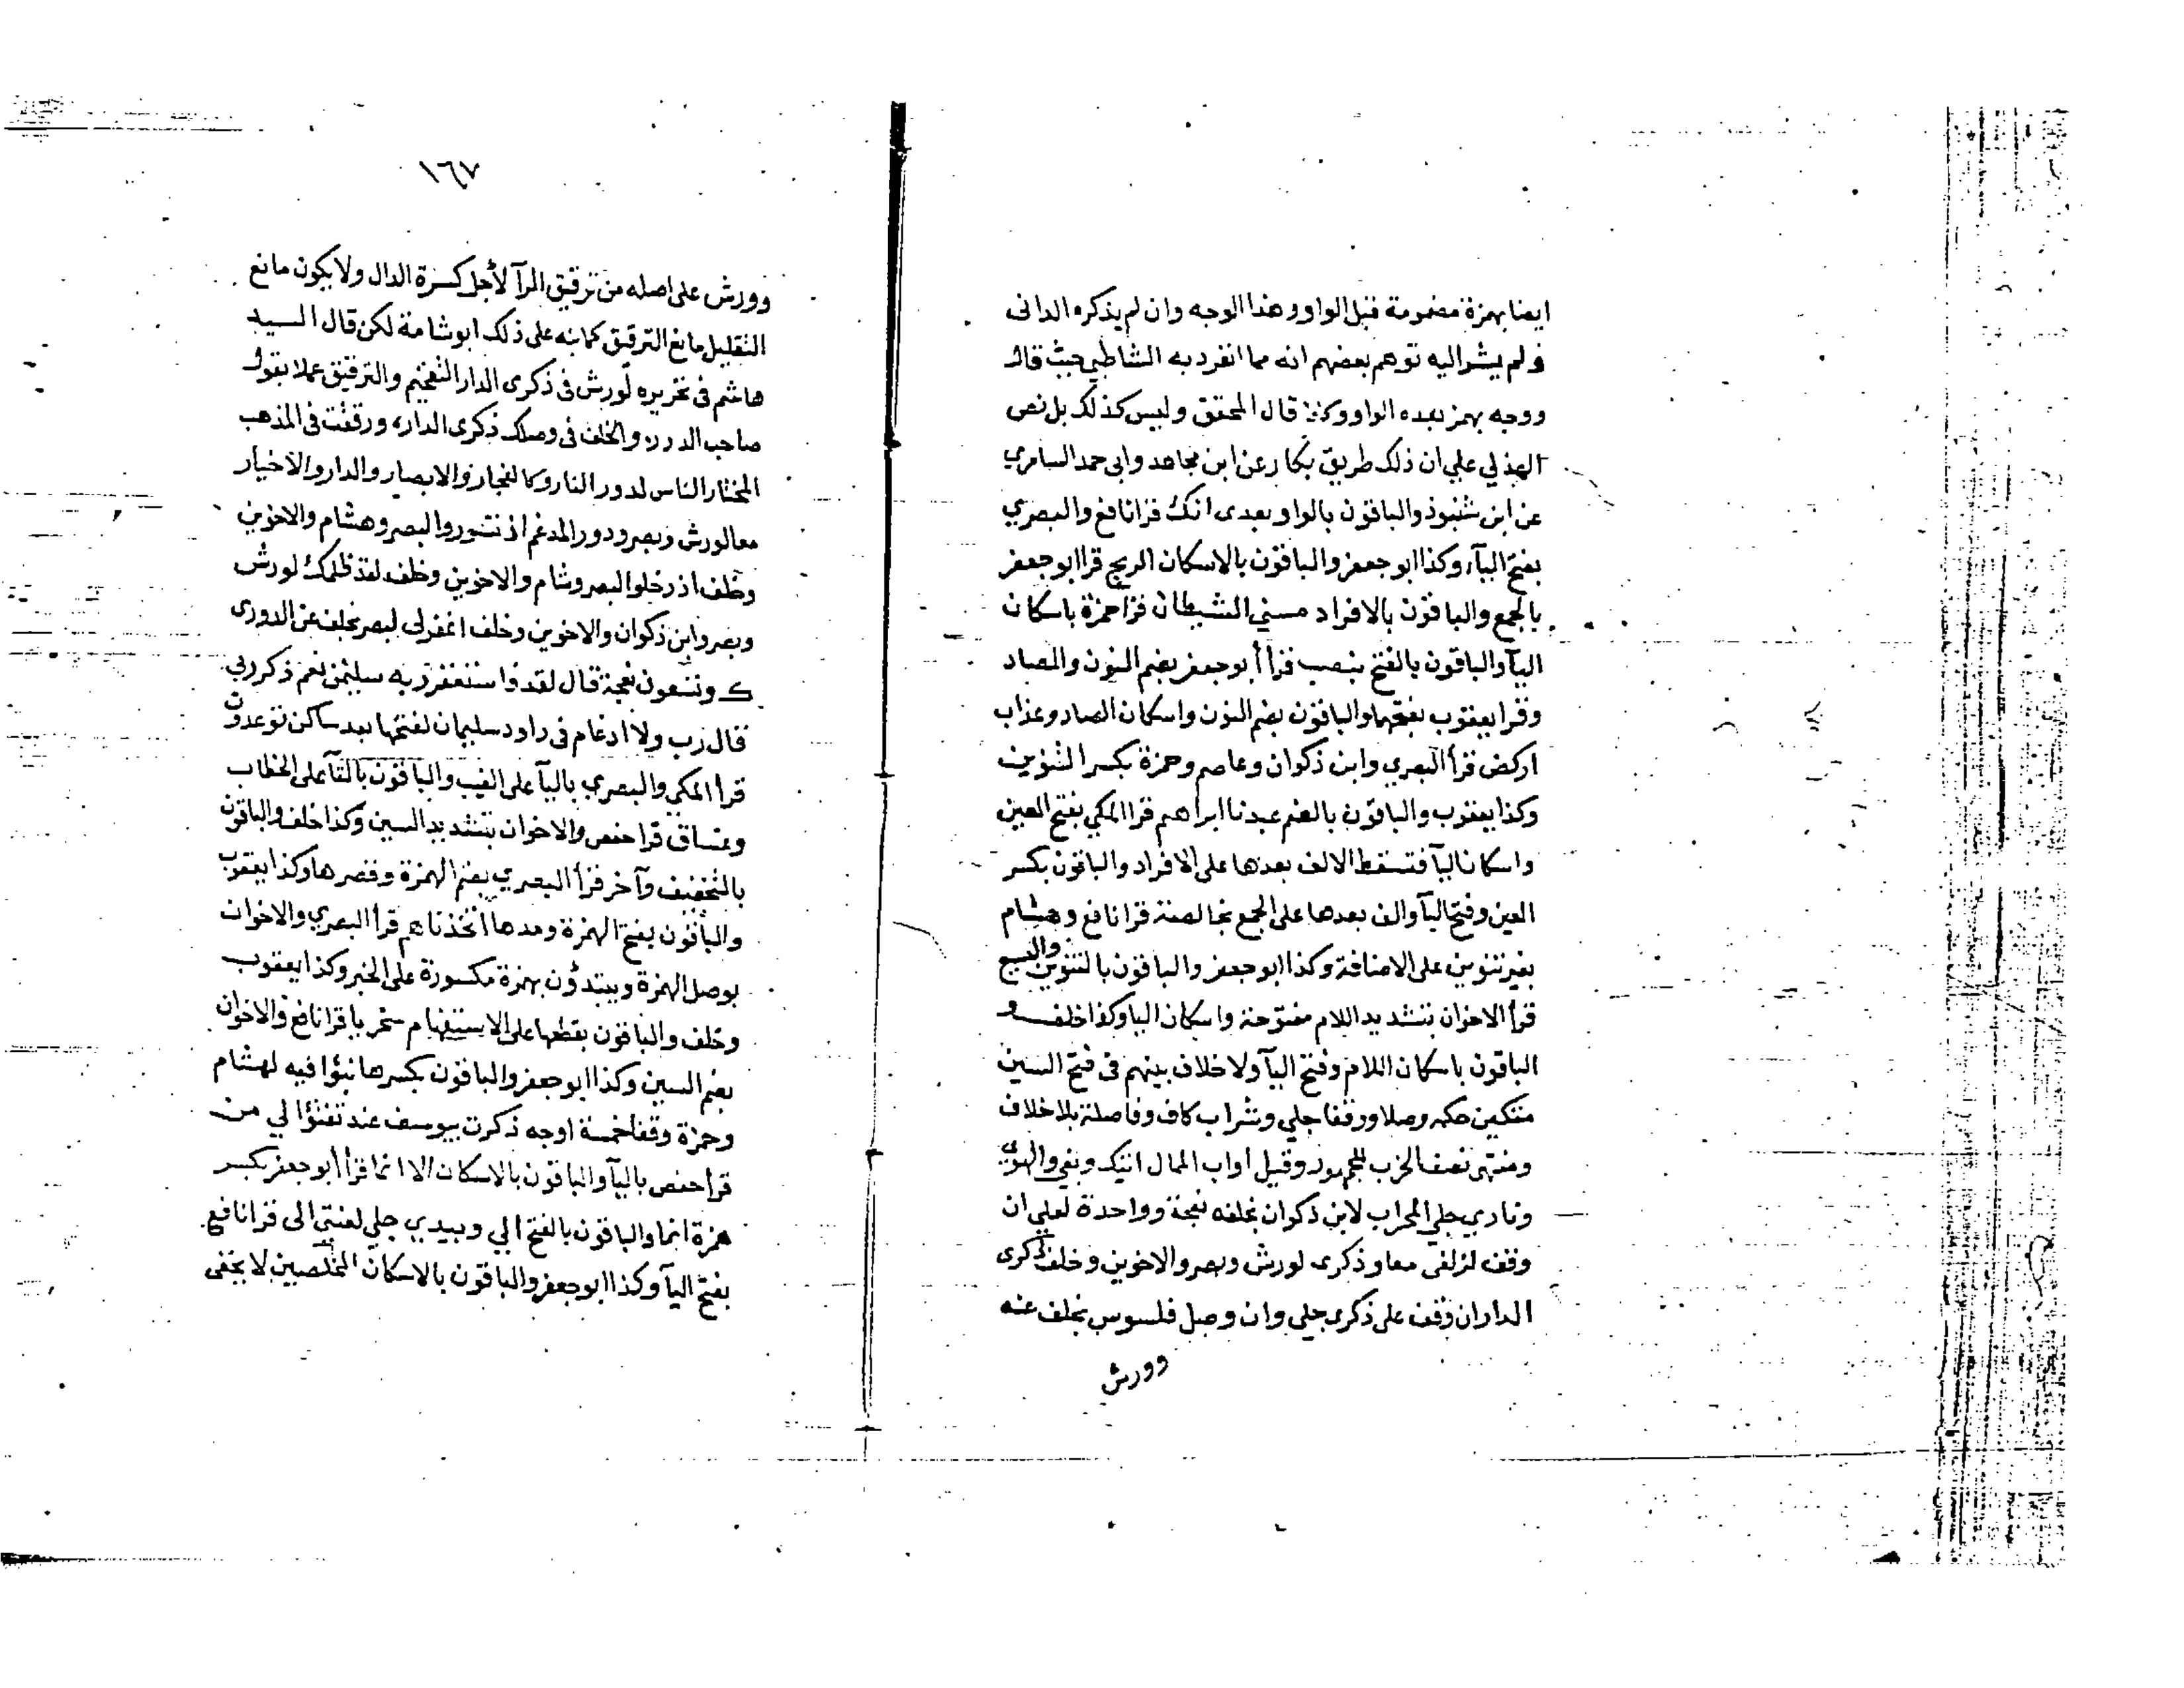 ايضا بهمزة مضمومة قبل الواو وهذا الوجه وان لم يذكره الدانى
ولم يشر اليه توهم بعضهم انه مما انفرد به الشاطبي حيث قال
ووجه بهمز بعده الواو وكلا قال المحقق وليس كذلك بل نص
الهذلي علي ان ذلك طريق بكار عن ابن مجاهد وابى احمد السامري
عن ابن شنبوذ والباقون بالواو بعدى انك قرا نافع والبصري
بفتح اليآء وكذا ابو جعفر والباقون بالاسكان الريح قرا ابو جعفر
بالجمع والباقون بالافراد مسني الشيطان قرا حمزة باسكان
اليآ والباقون بالفتح بنصب قرأ أبو جعفر بضم النون والصاد
وقرا يعقوب بفتحهما والباقون بضم النون واسكان الصاد وعذاب
اركض قرأ البصري وابن ذكوان وعاصم وحمزة بكسر التنوين
وكذا يعقوب والباقون بالضم عبدنا ابراهم قرا المكي بفتح العين
واسكان اليآ فتسقط الالف بعدها على الافراد والباقون بكسر
العين وفتح اليآ والف بعدها على الجمع بخالصة قرا نافع وهشام
بغير تنوين على الاضافة وكذا ابو جعفر والباقون بالتنوين واليسع
قرأ الاخوان بتشديد اللام مفتوحة واسكان اليا وكذا خلف و
الباقون باسكان اللام وفتح اليآ ولا خلاف بينهم فى فتح السين
متكين حكمه وصلا ووقفا جلي وشراب كاف وفاصلة بلا خلاف
ومنتهى نصف الحزب للجمهور وقيل اواب الممال اتيك وبغي والهوى
ونادي جلي المحراب لابن ذكوان بخلفه نعجة وواحدة لعلي ان
وقف لزلفى معا وذكرى لورش وبصر والاخوين وخلف ذكرى
الدار ان وقف على ذكرى جلي وان وصل فلسوس بخلف عنه
وورش
١٦٧
وورش على اصله من ترقيق الرآ لأجل كسرة الدال ولا يكون مانع
التقليل مانع الترقيق كما نبه على ذلك ابو شامة لكن قال السيد
هاشم فى تحريره لورش فى ذكرى الدار التفخيم والترقيق عملا بقول
صاحب الدرر والخلف فى وصلك ذكرى الدار، ورققت فى المذهب
المختار الناس لدور النار وكالفجار والابصار والدار والاخيار
معا لورش وبصر ودور المدغم اذ تسور والبصر وهشام والاخوين
وخلف اذ دخلوا لبصر وشام والاخوين وخلف لقد ظلمك لورش
وبصر وابن ذكوان والاخوين وخلف اغفر لى لبصر بخلف عن الدورى
ك وتسعون نعجة قال لقد فاستغفر ربه سليمن نعم ذكر ربى
قال رب ولا ادغام فى داود سليمان لفتحها بعد ساكن توعدون
قرأ المكي والبصري باليآ على الغيب والباقون بالتآ على الخطاب
وغساق قرا حفص والاخوان بتشديد السين وكذا خلف والباقون
بالتخفيف وآخر قرأ البصري بضم الهمزة وقصرها وكذا يعقوب
والباقون بفتح الهمزة ومدها اتخذناهم قرأ البصري والاخوان
بوصل الهمزة ويبتدؤن بهمزة مكسورة على الخبر وكذا يعقوب
وخلف والباقون بقطعها على الاستفهام سخريا قرا نافع والاخوان
بضم السين وكذا ابو جعفر والباقون بكسرها نبؤا فيه لهشام
وحمزة وقفا خمسة اوجه ذكرت بيوسف عند تفتؤا لي من
قرأ حفص باليآ والباقون بالاسكان الا انما قرأ أبو جعفر بكسر
همزة انما والباقون بالفتح الي وبيدي جلي لعنتي الى قرا نافع
بفتح اليآ وكذا ابو جعفر والباقون بالاسكان المخلصين لا يخفى